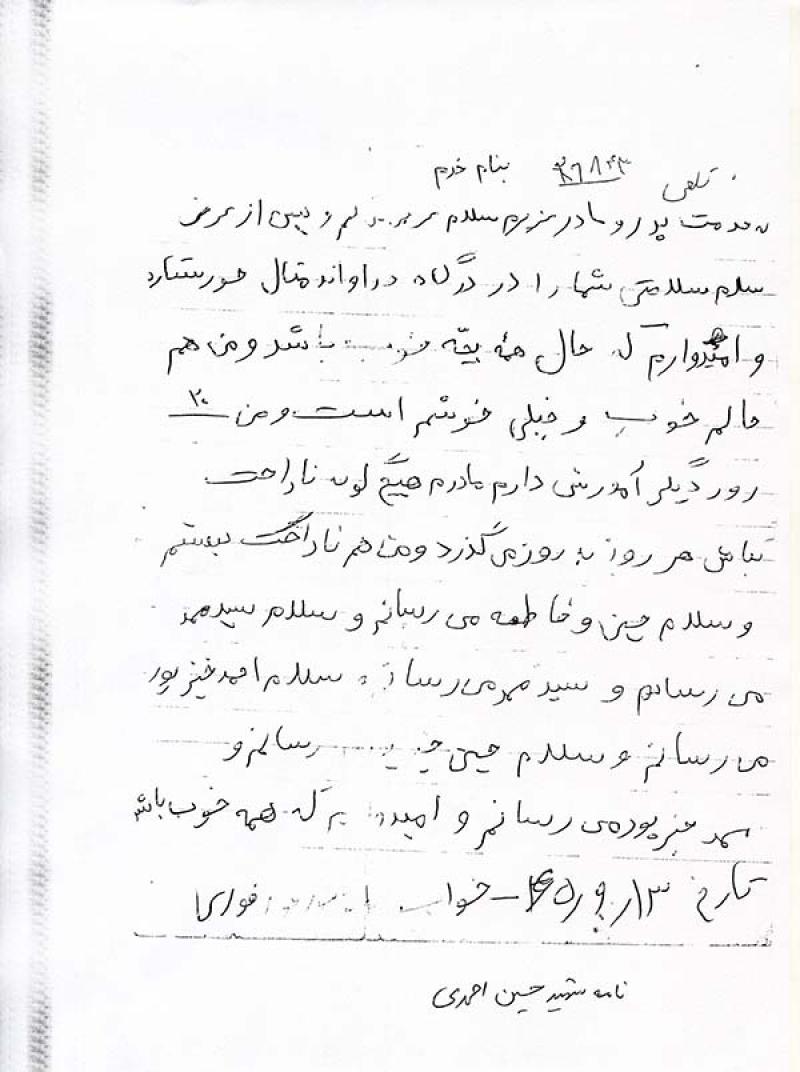 تلفن ۳۶۸۴۳ بنام خدم
خدمت پدر و مادر عزیزم سلام عرض و پس از عرض
سلام سلامتی شما را از درگاه خداوند متعال خواستارم
و امیدوارم که حال همه بچه خوب باشد و من هم
حالم خوب و خیلی خوشم است و من ۲۰
روز دیگر آموزشی دارم مادرم هیچ گونه ناراحت
نباش هر روز به روز می گذرد و من هم ناراحت نیستم
و سلام حسین و فاطمه می رسانم و سلام سید محمد
می رسانم و سید محمد می رسانم سلام احمد خیبر پور
می رسانم و سلام حسین رسانم و
پور می رسانم و امیدوارم که همه خوب باشد
تاریخ ۱۳ ر ۹ ر ۶۵ – جواب فوری
نامه شهید حسین احمدی